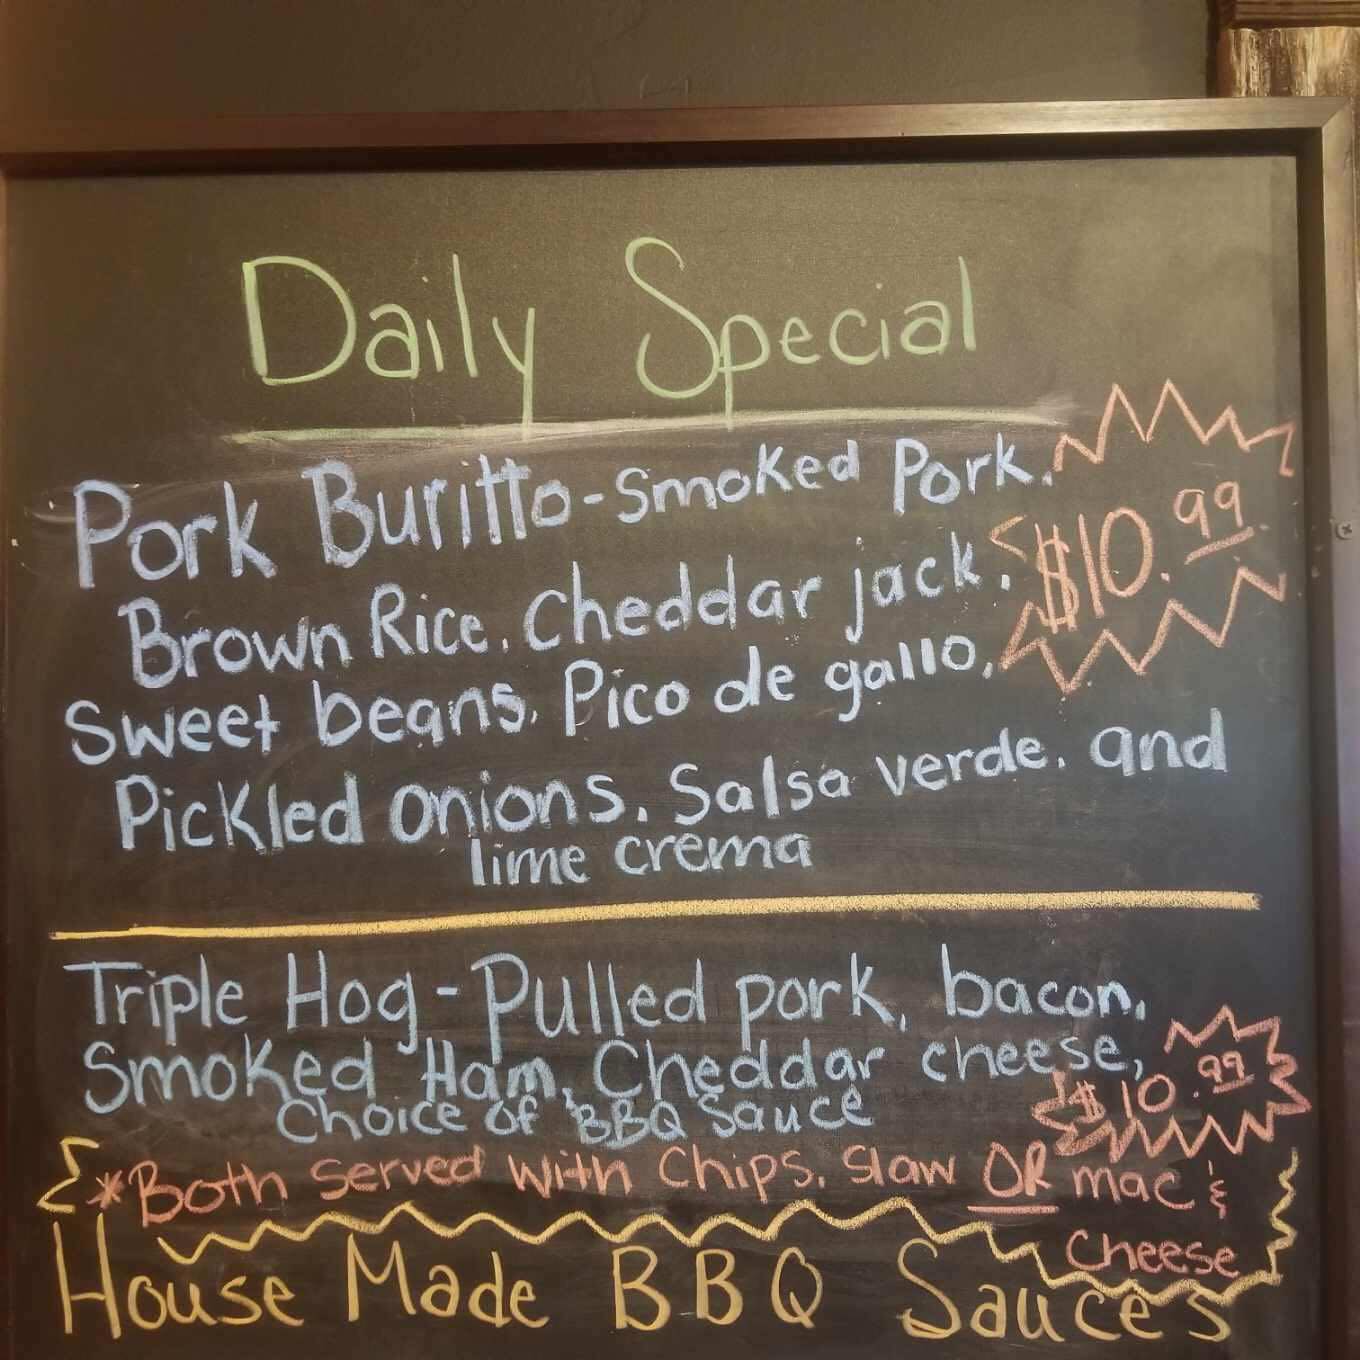 Daily Special
Pork Buritto - Smoked Pork,
$10.99
Brown Rice, Cheddar jack,
Sweet beans, Pico de gallo,
Pickled Onions, Salsa verde, and
lime crema
Triple Hog - Pulled pork, bacon,
Smoked Ham, Cheddar cheese,
$10.99
Choice of BBQ Sauce
*Both served with Chips, slaw OR mac &
Cheese
House Made BBQ Sauces